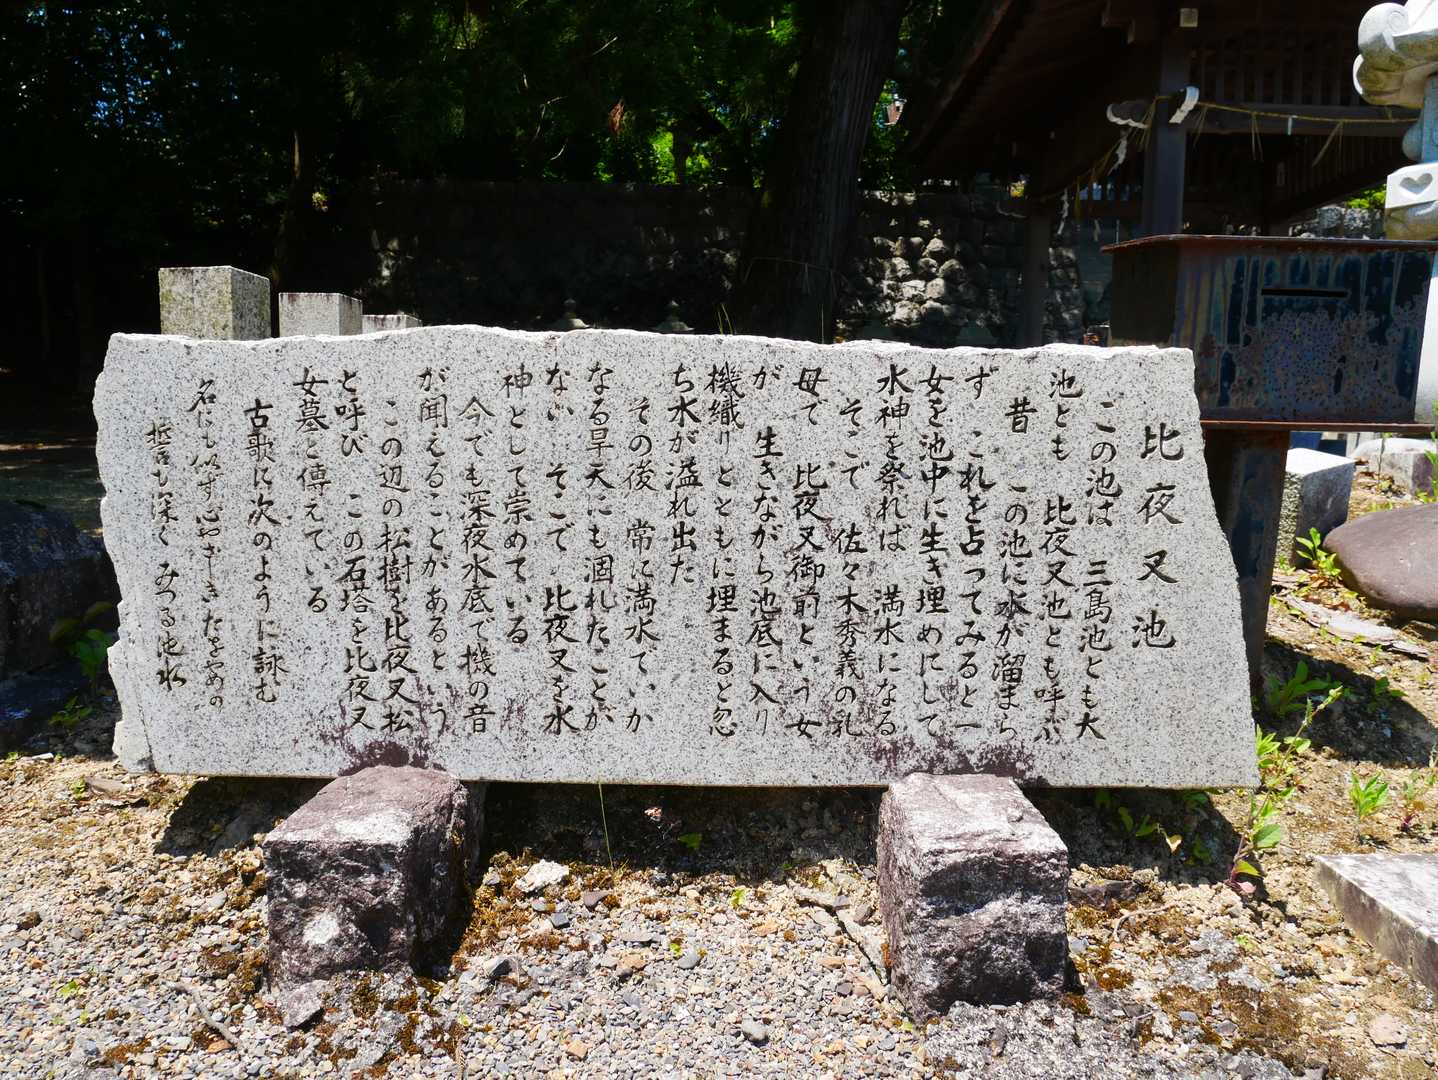 比夜叉池
この池は 三島池とも大
池とも 比夜叉池とも呼ぶ
昔 この池に水が溜まら
ず これを占ってみると一
女を池中に生き埋めにして
水神を祭れば 満水になる
そこで 佐々木秀義の乳
母で 比夜叉御前という女
が 生きながら池底に入り
機織りとともに埋まると忽
ち水が溢れ出た
その後 常に満水でいか
なる旱天にも涸れたことが
ない そこで 比夜叉を水
神として崇めている
今でも深夜水底で機の音
が聞えることがあるという
この辺の松樹を比夜叉松
と呼び この石塔を比夜叉
女墓と傳えている
古歌に次のように詠む
名にも似ず心やさしきたをやめの
誓も深く みつる池水